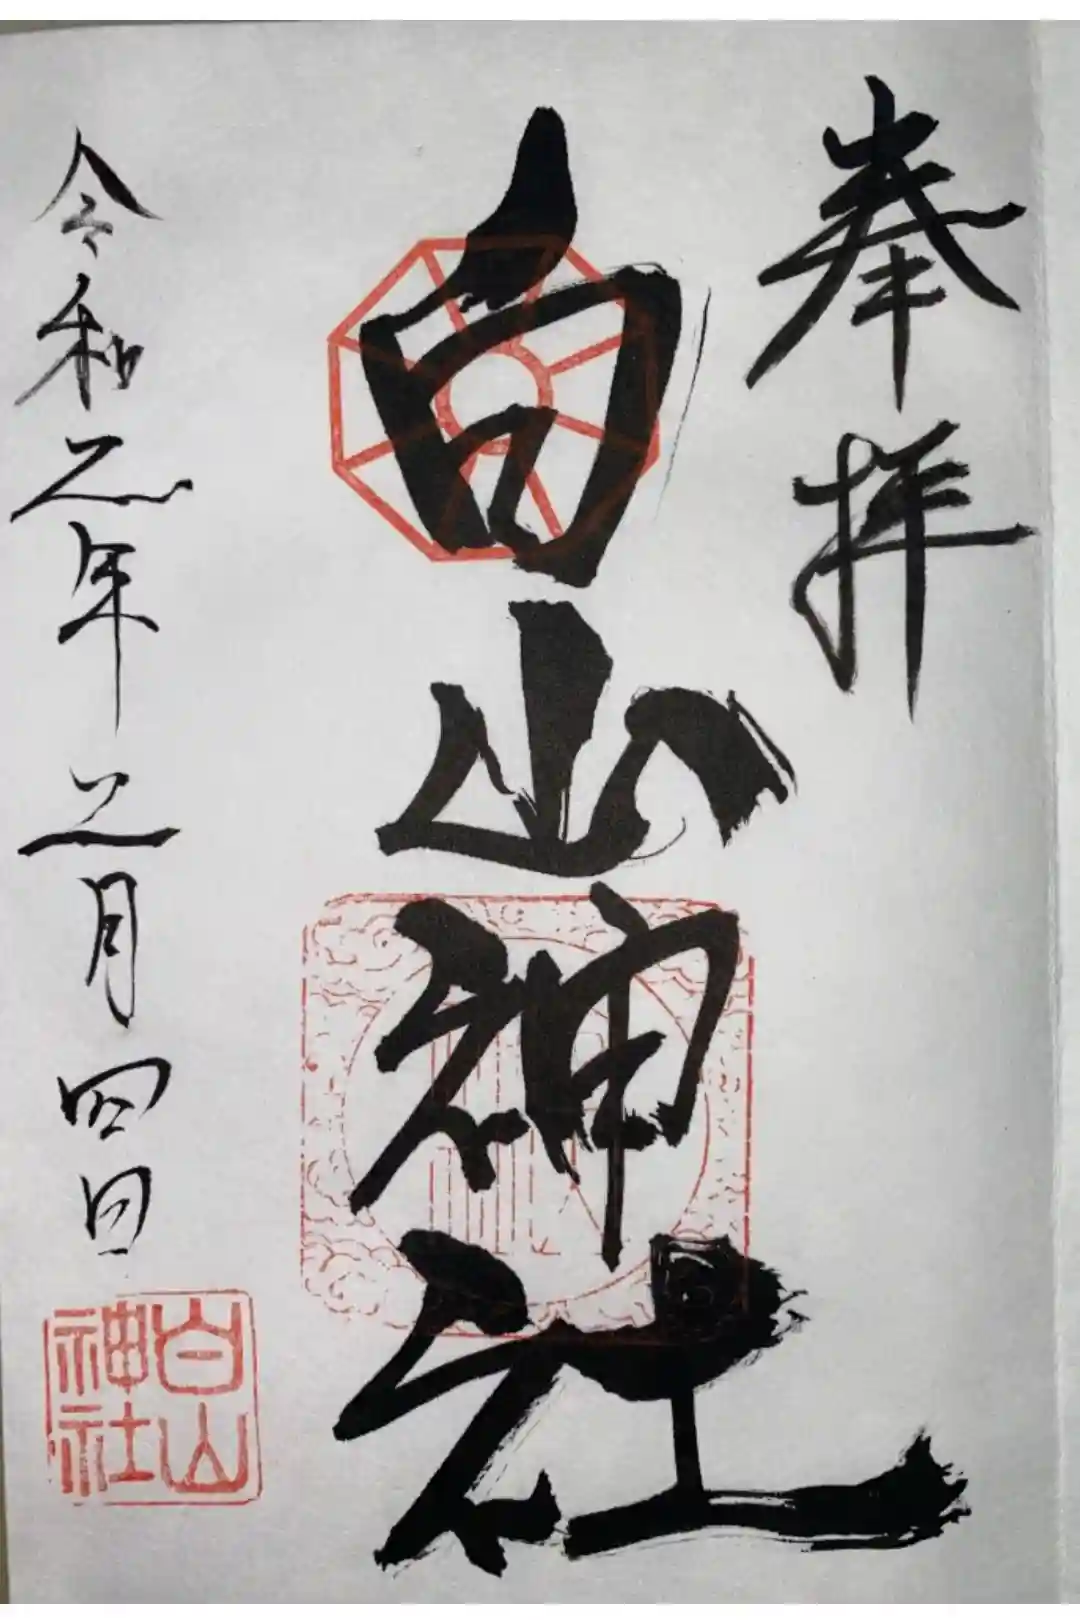 奉拝
白山神社
令和元年五月四日
白山神社